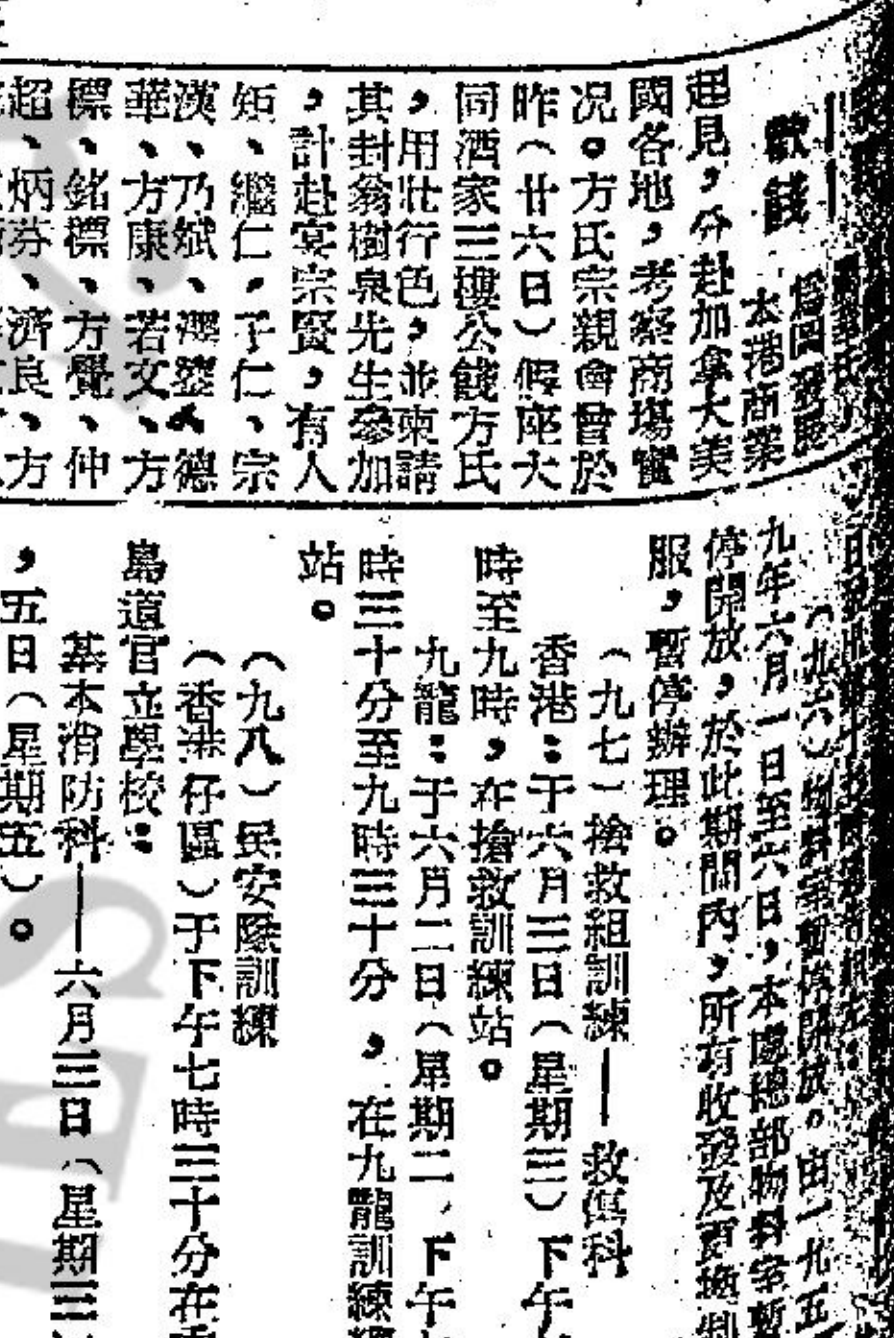 歡餞
本港商業
起見，分赴加拿大美
國各地，考察商場實
况。方氏宗親會曾於
昨（廿六日）假座大
同酒家三樓公餞方氏
，用壯行色，並柬請
其封翁樹泉先生參加
，計赴宴宗賢，有人
矩、繼仁、子仁、宗
漢、乃斌、德
華、方康、若文、方
標、銘標、方覺、仲
超、炳芬、濟良、方
（九六）物料室暫停開放。由一九五
九年六月一日至六日，本處總部物料室暫
停開放，於此期間內，所有收發及更換制
服，暫停辦理。
（九七）搶救組訓練——救傷科
香港：于六月三日（星期三）下午
時至九時，在搶救訓練站。
九龍：于六月二日（星期二、下午
時三十分至九時三十分，在九龍訓練
站。
（九八）民安隊訓練
（香港仔區）于下午七時三十分在
島道官立學校：
基本消防科——六月三日（星期三
，五日（星期五）。